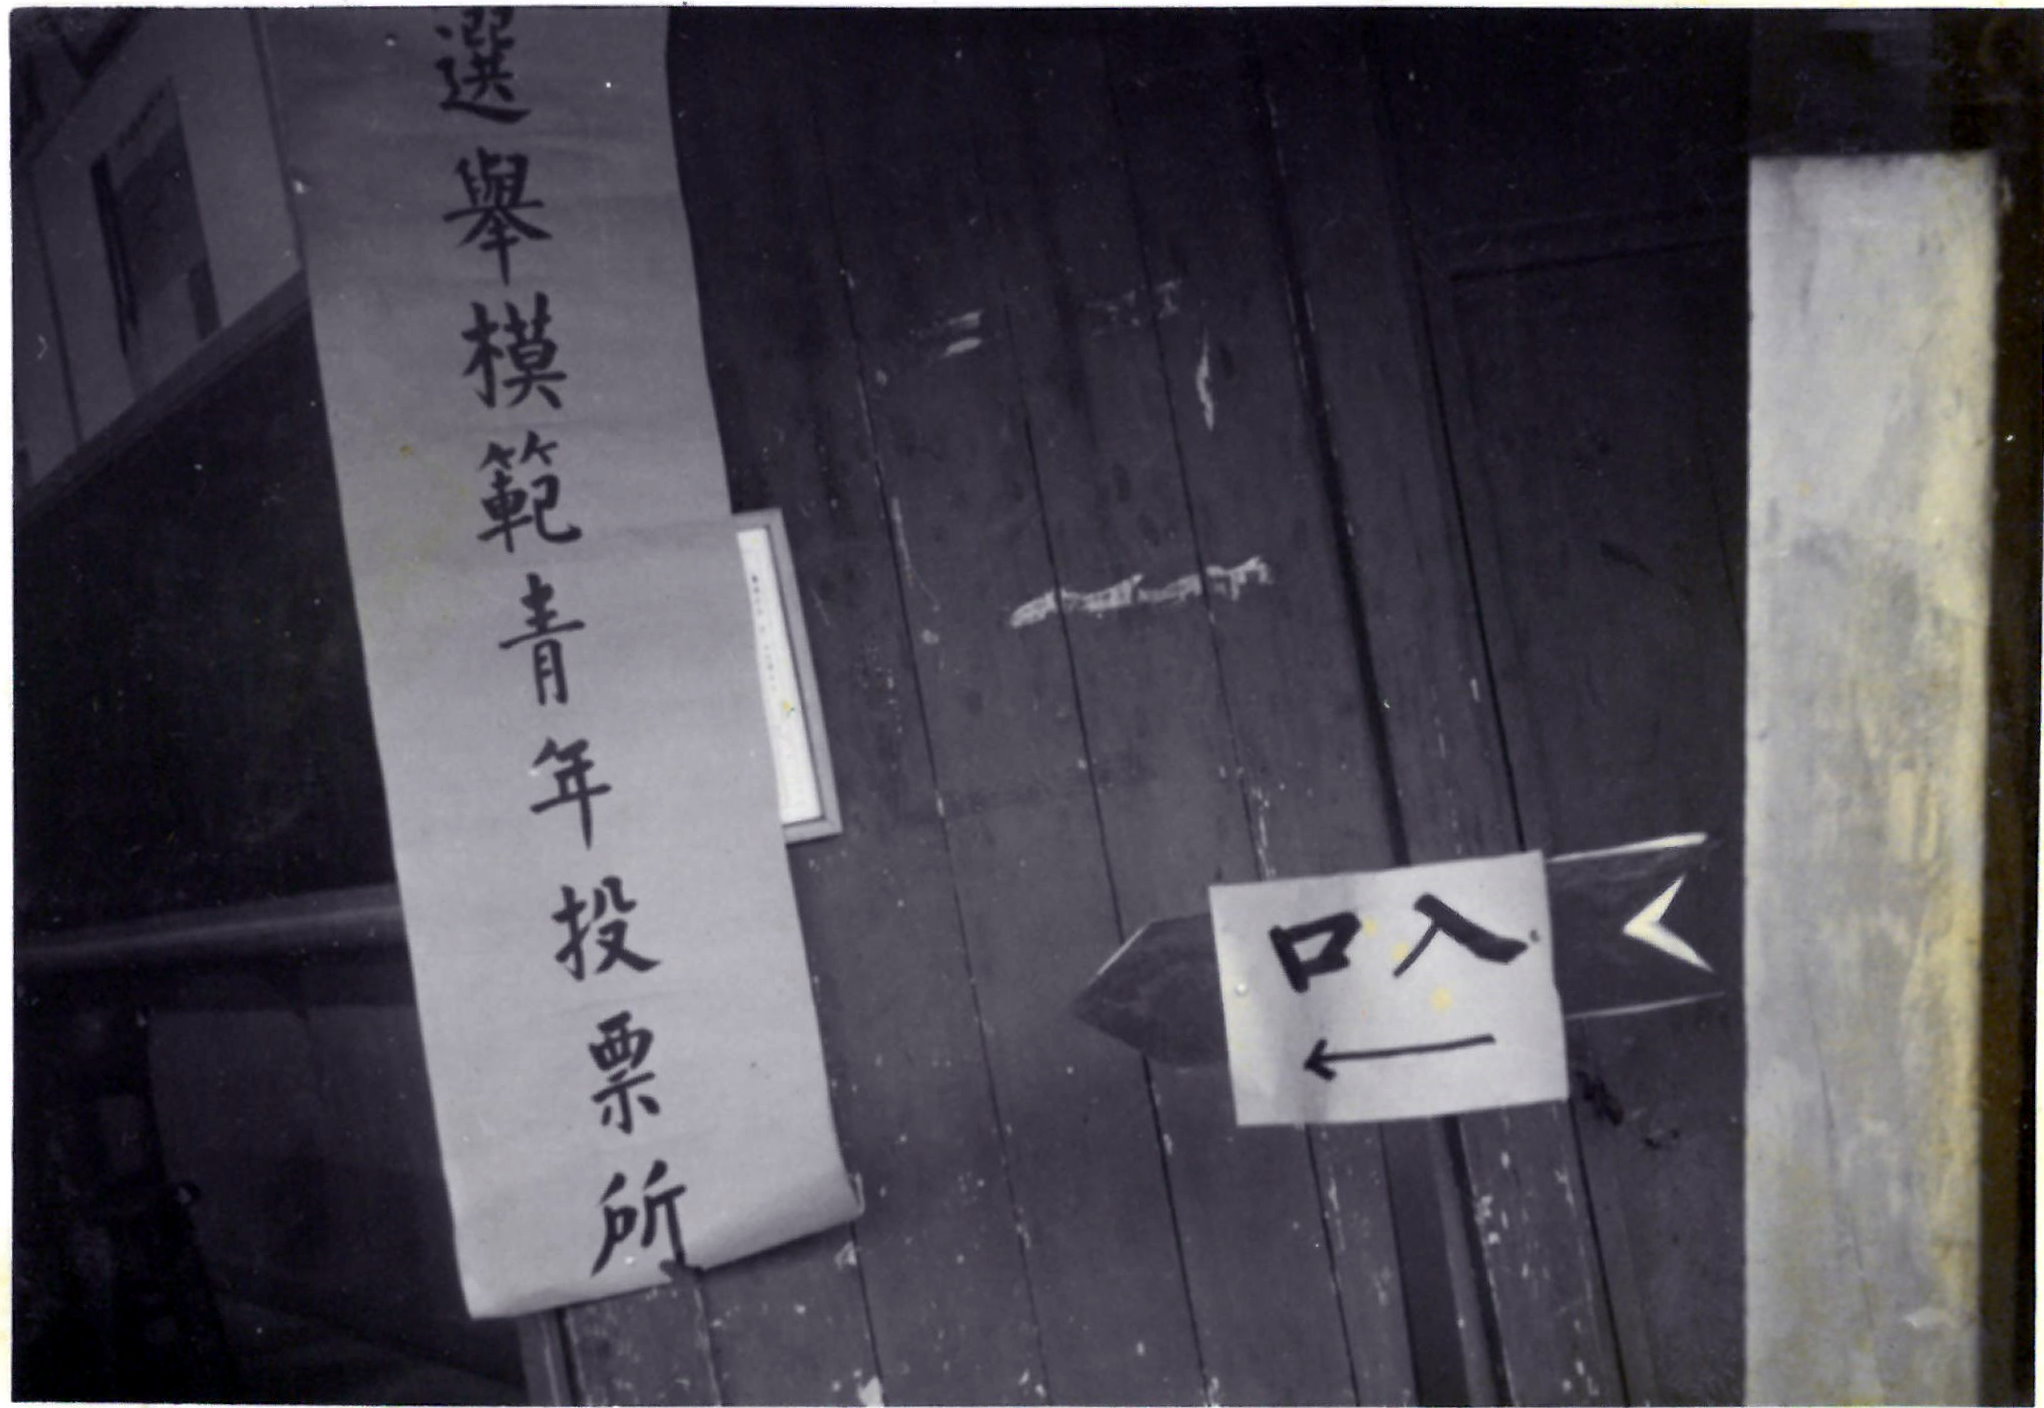 選舉模範青年投票所
入口